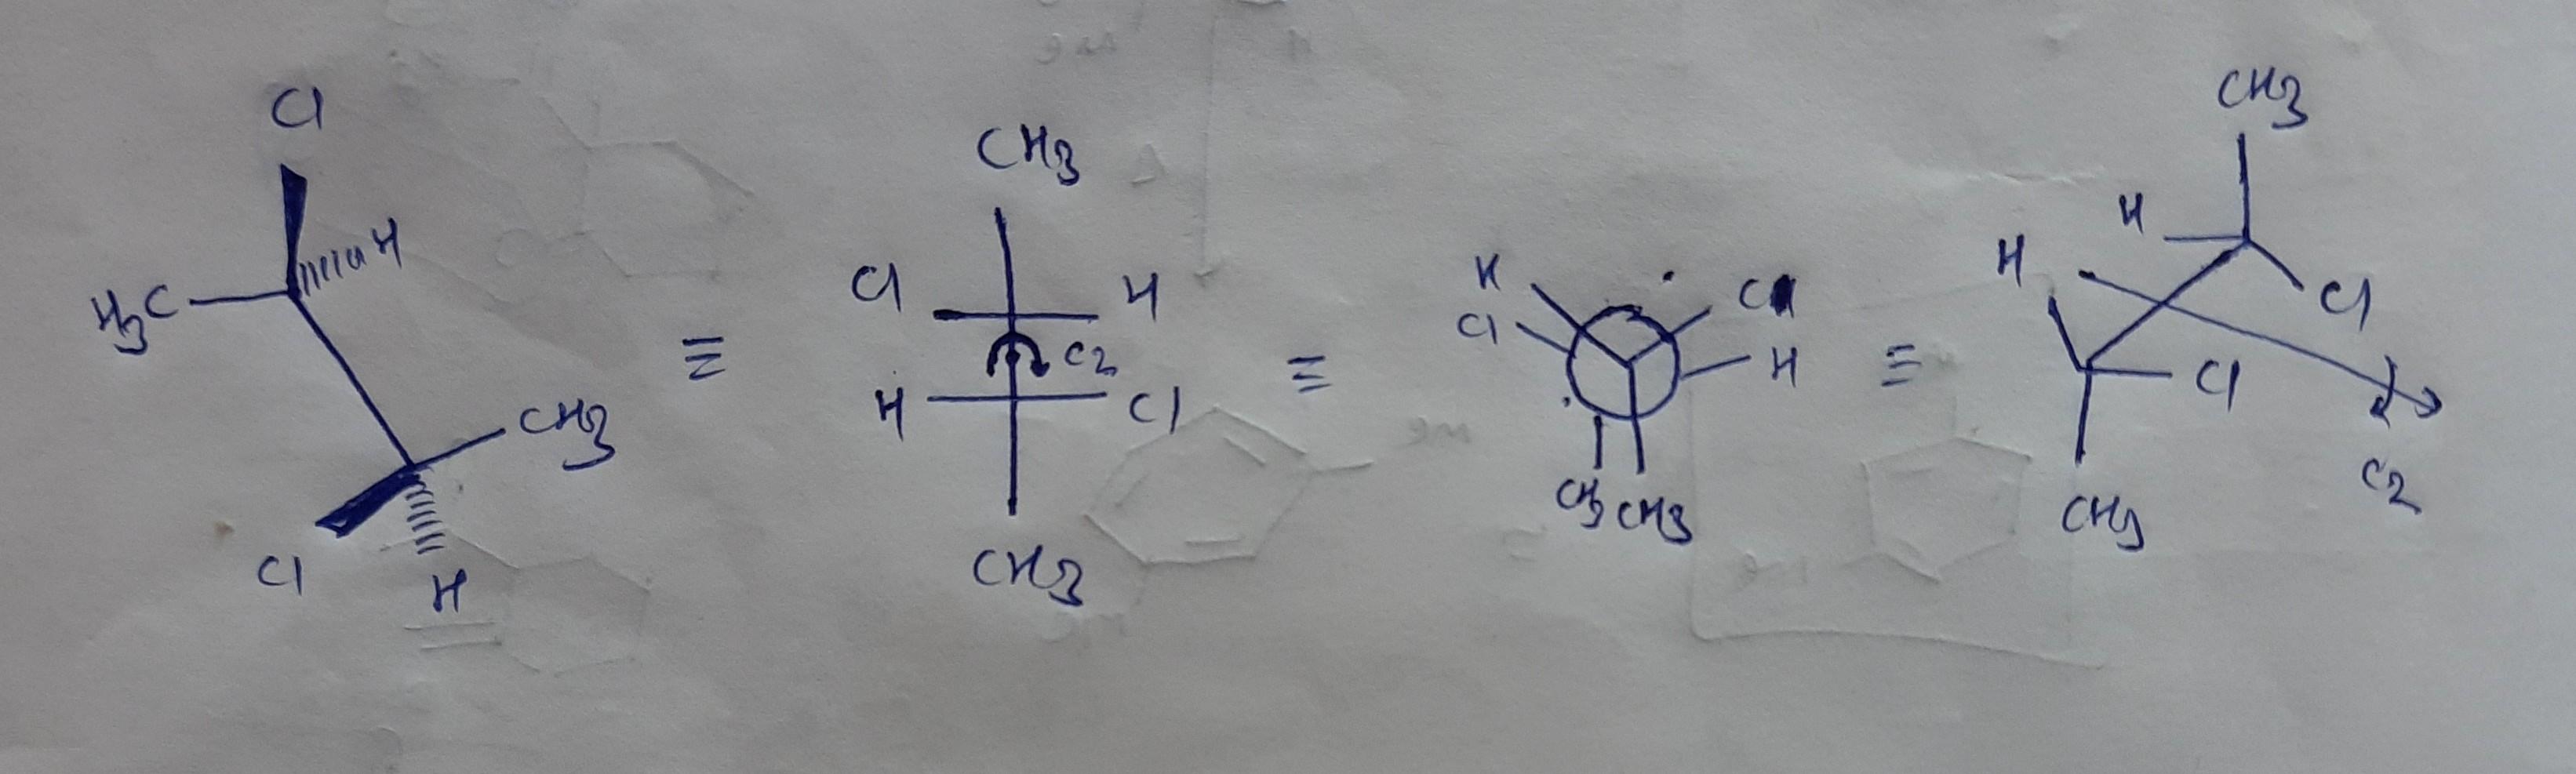 Cl
H
H3C
CH3
Cl
H
≡
CH3
Cl H
C2
H Cl
CH3
≡
H Cl
Cl H
CH3 CH3
≡
CH3
H
H
Cl
Cl
C2
CH3